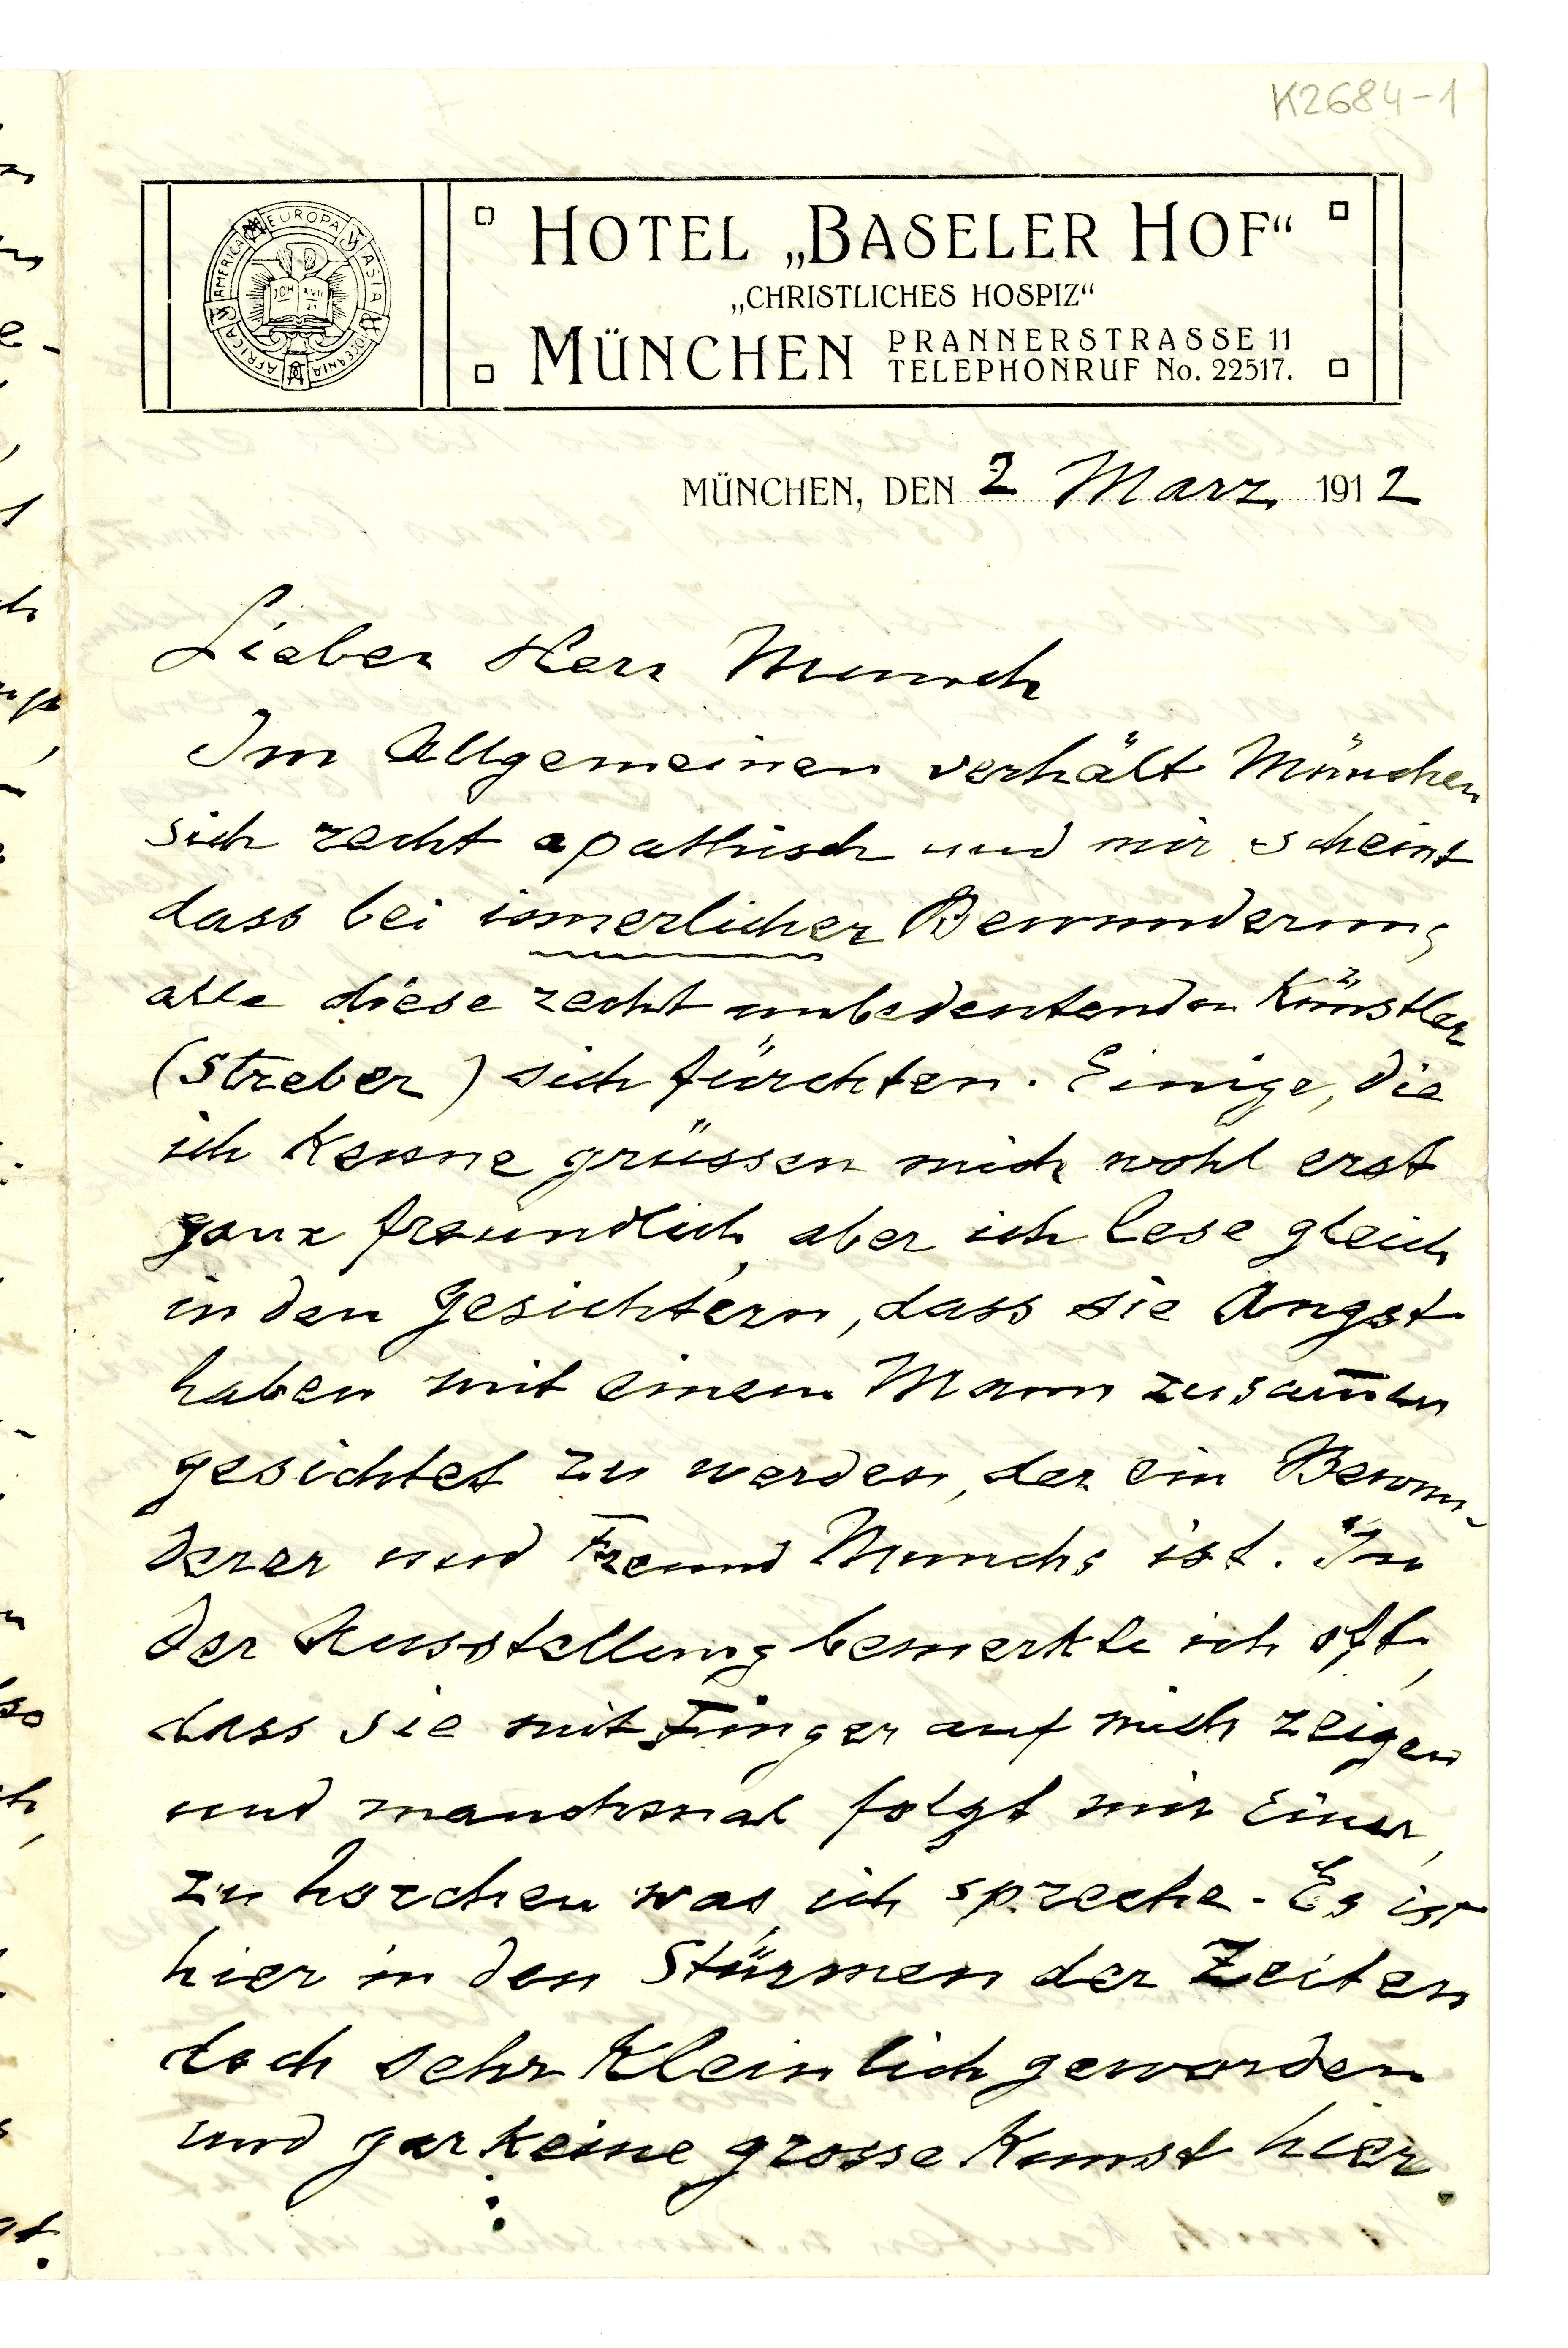 K2684-1
HOTEL „BASELER HOF“
„CHRISTLICHES HOSPIZ“
MÜNCHEN PRANNERSTRASSE 11
TELEPHONRUF No. 22517.
EUROPA ASIA OCEANIA AFRICA AMERICA
JOH XVII 21
MÜNCHEN, DEN 2 Marz 1912
Lieber Herr Munch
Im Allgemeinen verhält München
sich recht apathisch und mir scheint
dass bei innerlicher Bewunderung
alle diese recht unbedeutenden Künstler
(Streber) sich fürchten. Einige, die
ich kenne grüssen mich wohl erst
ganz freundlich, aber ich lese gleich
in den Gesichtern, dass sie Angst
haben mit einem Mann zusam̅en
gesichtet zu werden, der ein Bewun-
derer und Freund Munchs ist. In
der Ausstellung bemerkte ich oft,
dass sie mit Finger auf mich zeigen
und manchmal folgt mir Einer,
zu horchen was ich spreche. Es ist
hier in den Stürmen der Zeiten
doch sehr kleinlich geworden
und gar keine grosse Kunst hier.